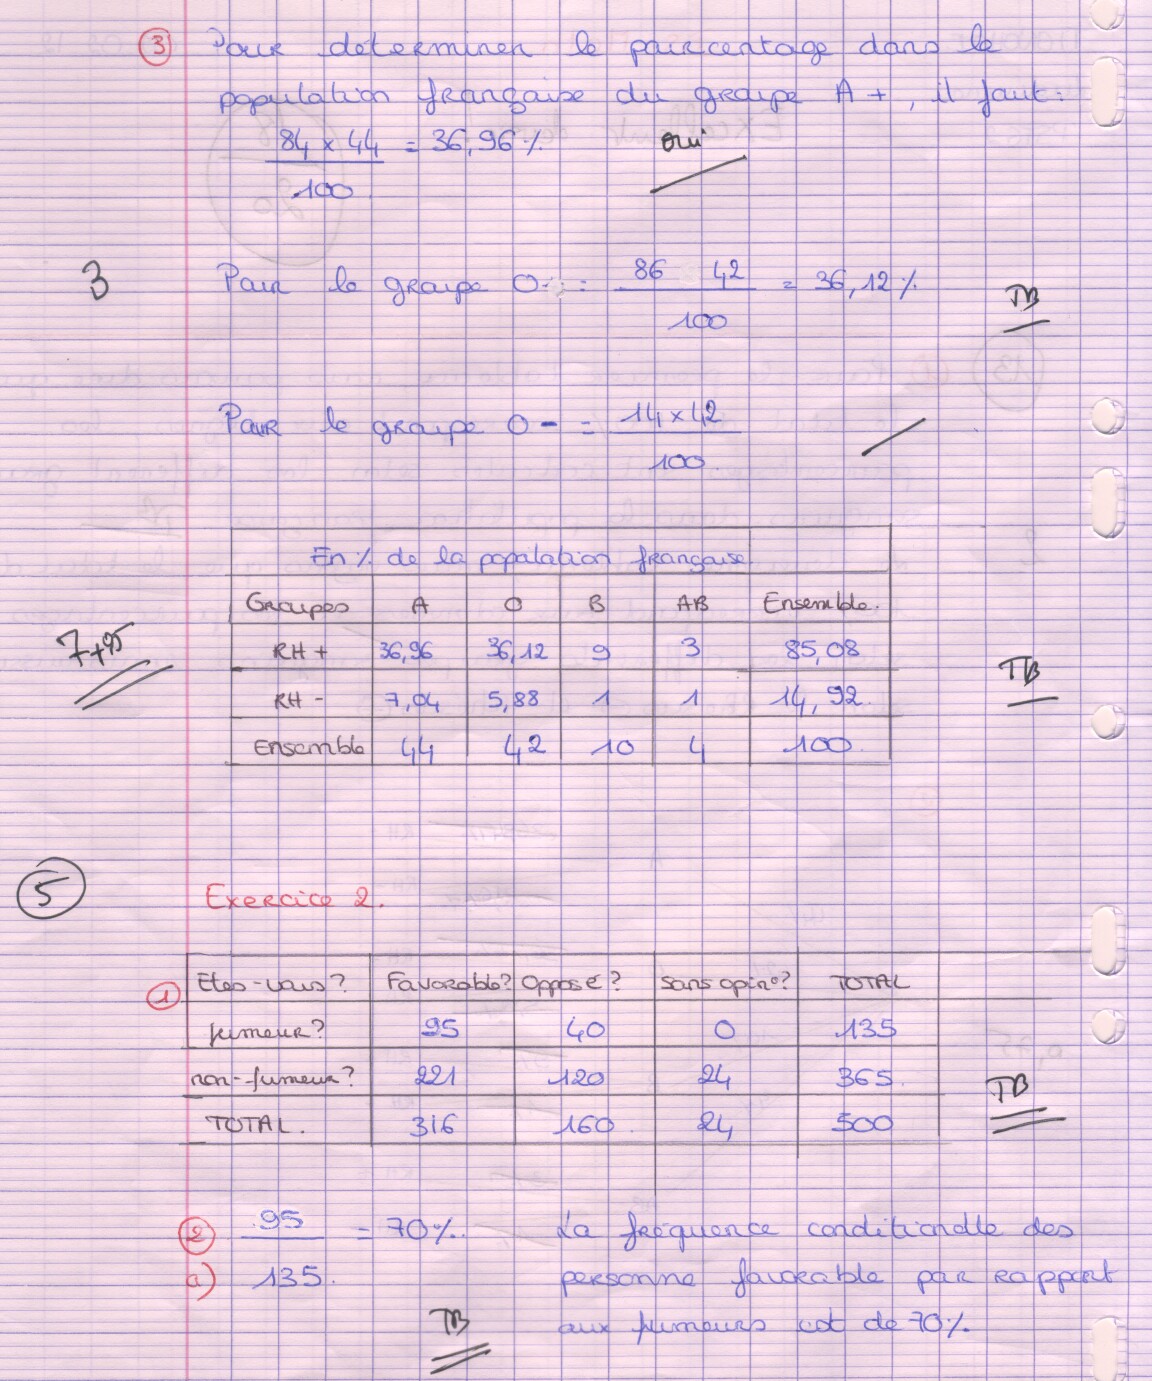 ③ Pour déterminer le pourcentage dans la
population française du groupe A+, il faut :
84 x 44 = 36,96 %
100
oui
3
Pour le groupe O- : 86 42 = 36,12 %
100
TB
Pour le groupe O - = 14 x 42
100
En % de la population française
Groupes A O B AB Ensemble.
RH + 36,96 36,12 9 3 85,08
7+95
TB
RH - 7,04 5,88 1 1 14,92
Ensemble 44 42 10 4 100
5
Exercice 2.
① Etes-vous ? Favorable? Opposé ? Sans opin° ? TOTAL
fumeur ? 95 40 0 135
non-fumeur ? 221 120 24 365
TB
TOTAL. 316 160 24 500
② 95 = 70%. La fréquence conditionelle des
a) 135. personne favorable par rapport
aux fumeurs est de 70%.
TB